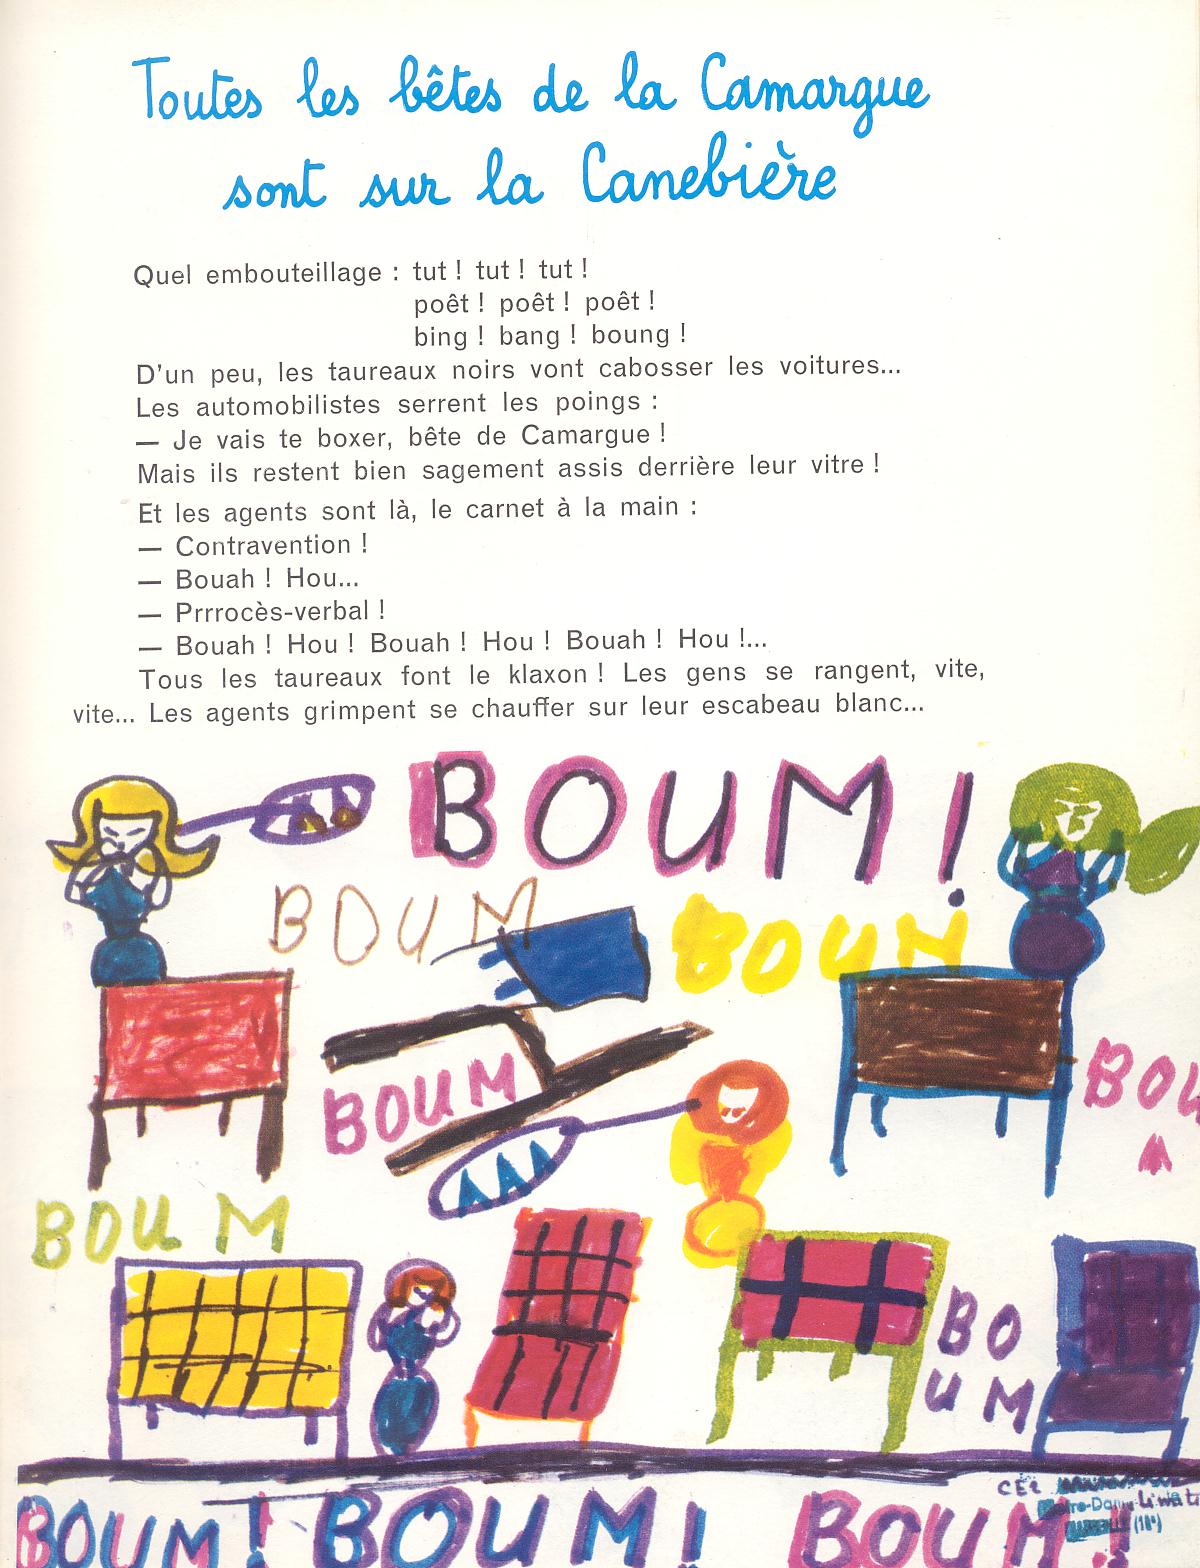 Toutes les bêtes de la Camargue
sont sur la Canebière
Quel embouteillage : tut ! tut ! tut !
poêt ! poêt ! poêt !
bing ! bang ! boung !
D'un peu, les taureaux noirs vont cabosser les voitures...
Les automobilistes serrent les poings :
— Je vais te boxer, bête de Camargue !
Mais ils restent bien sagement assis derrière leur vitre !
Et les agents sont là, le carnet à la main :
— Contravention !
— Bouah ! Hou...
— Prrrocès-verbal !
— Bouah ! Hou ! Bouah ! Hou ! Bouah ! Hou !...
Tous les taureaux font le klaxon ! Les gens se rangent, vite,
vite... Les agents grimpent se chauffer sur leur escabeau blanc...
BOUM !
BOUM
BOUM
BOUM
BOU
BOUM
BO
UM
CE2
(10e)
BOUM ! BOUM ! BOUM !